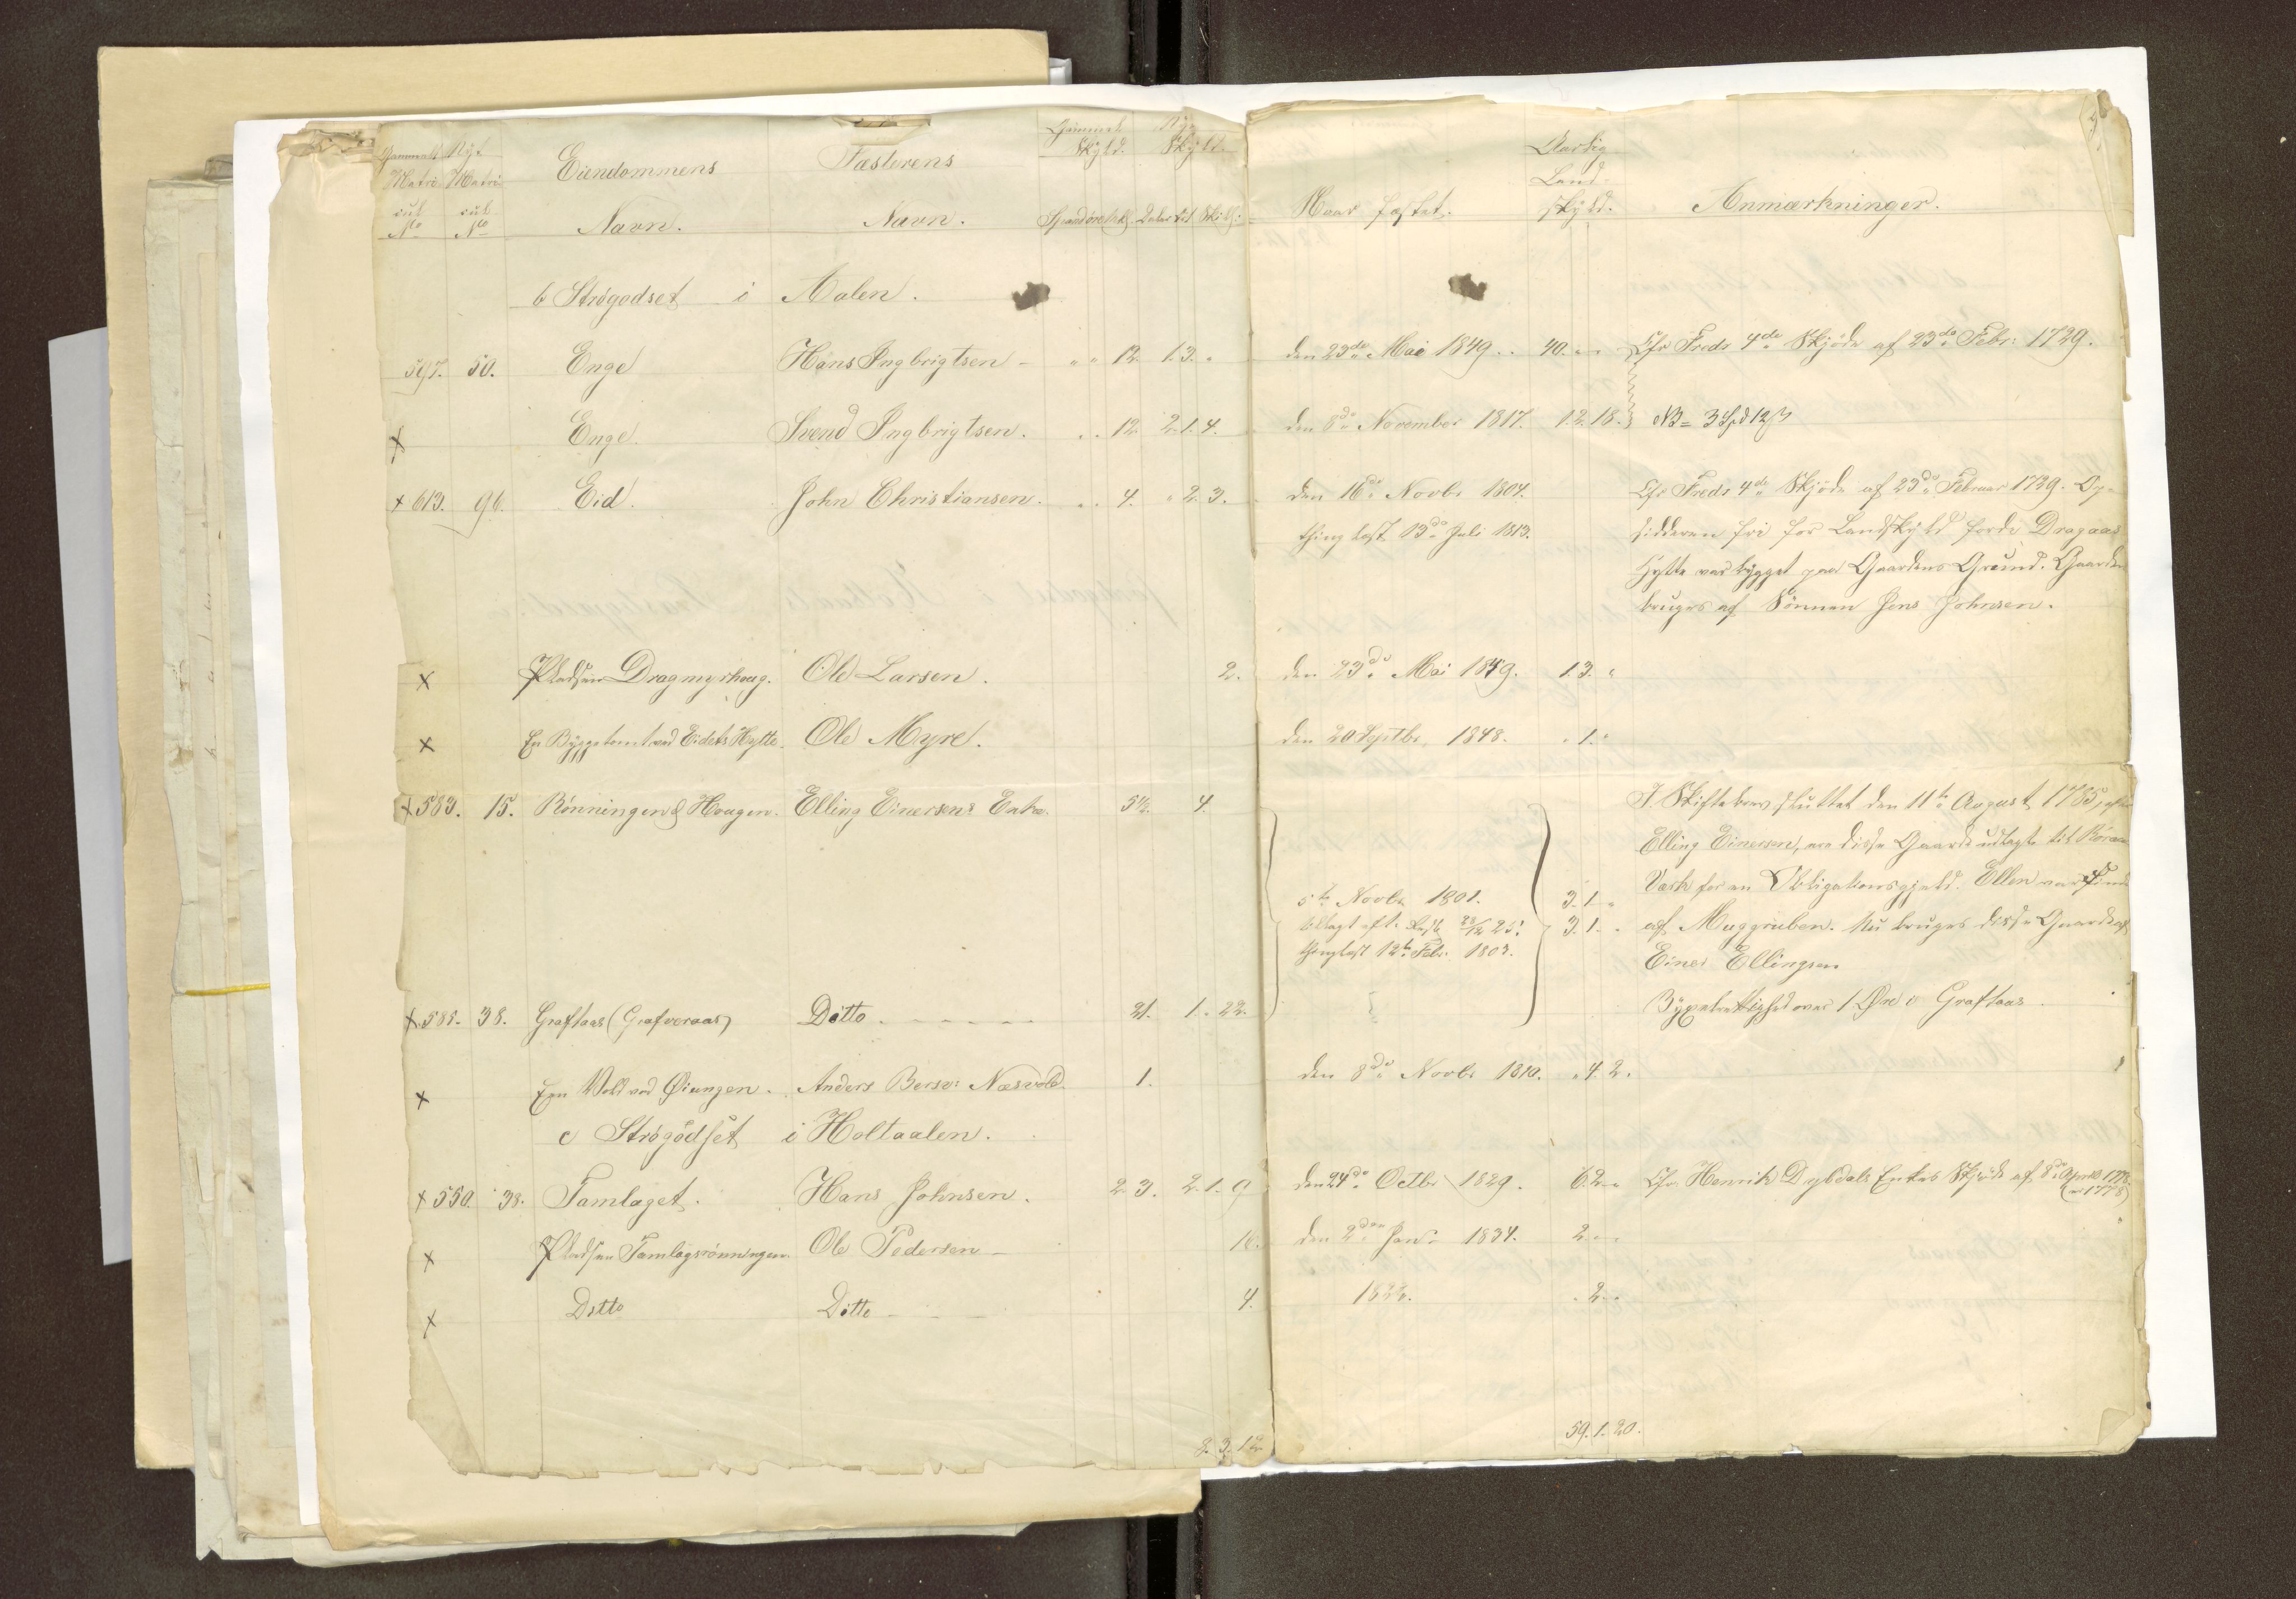 Gammelt Nyt Eiendommens Fæsterens Gammel Ny
Matri Matri Skyld. Skyld. Aarlig
cul cul Land-
No No Navn. Navn. Spand øre Daler ort Skill: Naar fæstet. skyld. Anmærkninger.
b Strøgodset i Aalen.
597. 50. Enge Hans Ingbrigtsen - " " 12. 1.3. " den 23de Mai 1849. 40. " Chr Freds 4de Skjøde af 23de Febr: 1729.
x Enge. Svend Ingbrigtsen. . . 12. 2.1.4. den 8de November 1817. 12.18. NB = 3
x 613. 96. Eid. John Christiansen. . . 4. " 2.3. den 16de Novbr 1804. Chr Freds 4de Skjøde af 23de Februar 1729. Op-
thinglæst 13de Juli 1813. sidderen fri for Landskyld fordi Dragaas
Hytte var bygget paa Gaardens Grund. Gaarden
bruges af Sønnen Jens Johnsen.
x Pladsen Dragmyrhaug. Ole Larsen. 2. den 23de Mai 1849. 1.3. "
x En Byggetomt ved Eidets Hytte. Ole Myre. den 20 Septbr. 1848. " 1. "
x 583. 15. Rønningen & Hougen. Elling Einersens Enke. 5½. 4. I Skiftebrev sluttet den 11te August 1785, efter
Elling Einersen, ere disse Gaarde udlagte til Røraas
Værk for en Obligationsgjæld. Ellen var
5te Novbr 1801. 3.1. "
3.1. " af Muggruben. Nu bruges disse Gaarde af
thinglæst 12te Febr. 1803. Einer Ellingsen
x 585. 38. Graftaas (Grafveraas) Ditto . - - - - 21. 1. 22. Bygselrettighed over 1 Øre i Graftaas.
x En Vold ved Øiungen. Anders Bersv: Næsvold. 1. den 8de Novbr 1810. " 4.2.
c Strøgodset i Holtaalen.
x 550. 38. Tamlaget. Hans Johnsen. 2.3. 2.1.9 den 24de Octbr 1829. 6.2. " Chr Henrik Dryrdals Enkes Skjøde af 8de April 1778.
x Pladsen Tamlagsrønningen Ole Pedersen - 16. den 2den Janr 1834. 2. "
x Ditto Ditto - - - 4. . 2. "
8.3.12 59.1.20.